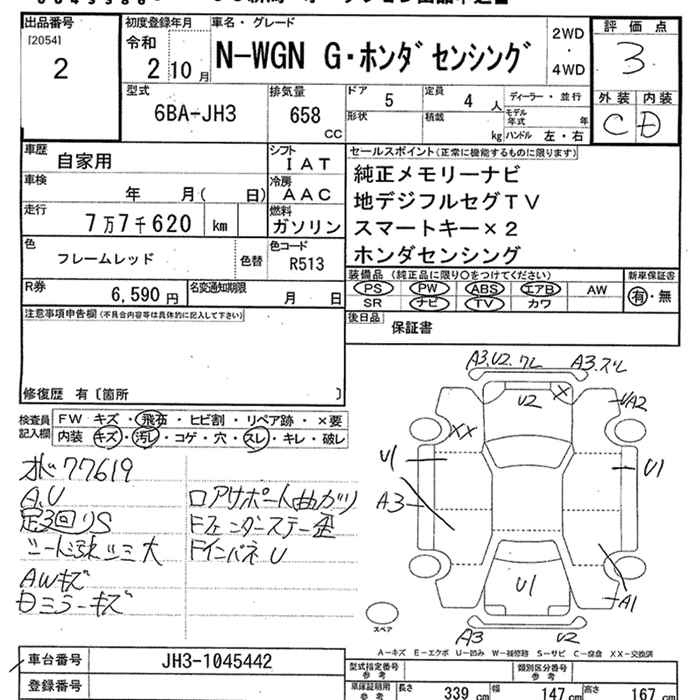 出品番号
[2054]
2
初度登録年月
令和
2 10 月
車名・グレード
N-WGN G・ホンダセンシング
2WD
・
4WD
評価点
3
外装 内装
C D
型式
6BA-JH3
排気量
658
CC
ドア
5
定員
4 人
ディーラー・並行
形状
積載
kg
モデル年式
年
ハンドル 左・右
車歴
自家用
シフト
IAT
車検
年 月( 日)
冷房
AAC
走行
7万7千620 km
燃料
ガソリン
色
フレームレッド
色替
色コード
R513
R券
6,590 円
名変通知期限
月 日
セールスポイント(正常に機能するものに限ります)
純正メモリーナビ
地デジフルセグTV
スマートキー×2
ホンダセンシング
装備品 (純正品に限り○をつけてください)
PS PW ABS エアB AW
SR ナビ TV カワ
新車保証書
有・無
後日品
保証書
注意事項申告欄(不具合内容等は具体的に記入して下さい)
修復歴 有〔箇所 〕
検査員
記入欄
FW キズ・飛石・ヒビ割・リペア跡・×要
内装 キズ・汚レ・コゲ・穴・スレ・キレ・破レ
77619
A.U
シート汚れシミ大
A.Wキズ
Dミラーキズ
ロアサポート曲ガリ
Fフェンダーステー歪
FインパネU
A3.U2.ワレ
A3.ズレ
U2
X
UA2
XX
U1
U1
A3
U1
A1
A3
U2
スペア
A-キズ E-エクボ U-凹み W-補修跡 S-サビ C-腐食 XX-交換済
車台番号
JH3-1045442
登録番号
型式指定番号
参考
類別区分番号
参考
車検証明用
参考
長さ
339 cm
幅
147 cm
高さ
167 cm